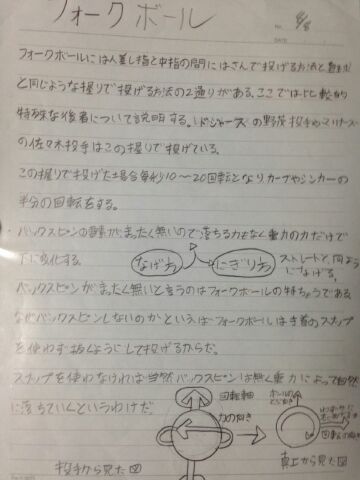 フォークボール
No. 8/8
DATE
フォークボールには人差し指と中指の間にはさんで投げる方法と直球
と同じような握りで投げる方法の2通りがある。ここでは比較的
特殊な後者について説明する。ドジャースの野茂投手やマリナーズ
の佐々木投手はこの握りで投げている。
この握りで投げた場合毎秒10〜20回転となりカーブやシンカーの
半分の回転をする。
バックスピンの要素がまったく無いので落ちる力もなく重力の力だけで
下に変化する。
なげ方
にぎり方
ストレートと同ように
なげる。
バックスピンがまったく無いと言うのはフォークボールの特ちょうである
なぜバックスピンしないのかといえばフォークボールは手首のスナップ
を使わず抜くようにして投げるからだ。
スナップを使わなければ当然バックスピンは無く重力によって自然
に落ちていくというわけだ。
回転軸
力の向き
投手から見た図
真上から見た図